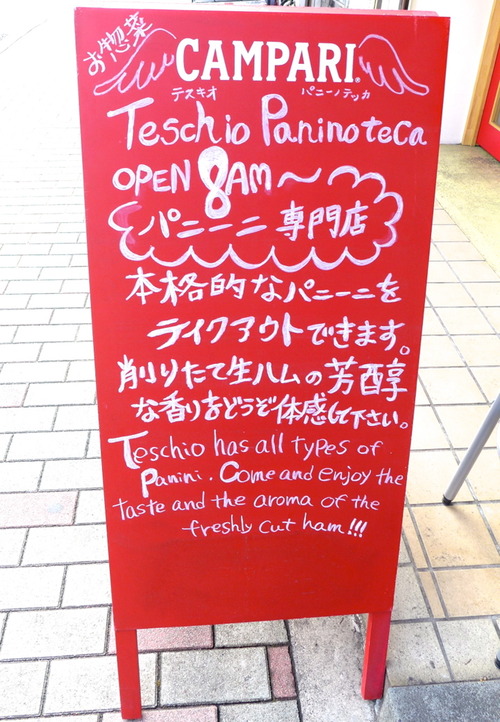 お惣菜
CAMPARI
テスキオ パニーノテッカ
Teschio Paninoteca
OPEN 8AM〜
パニーニ 専門店
本格的なパニーニを
テイクアウトできます。
削りたて生ハムの芳醇
な香りをどうぞ体感して下さい。
Teschio has all types of
Panini. Come and enjoy the
taste and the aroma of the
freshly cut ham!!!